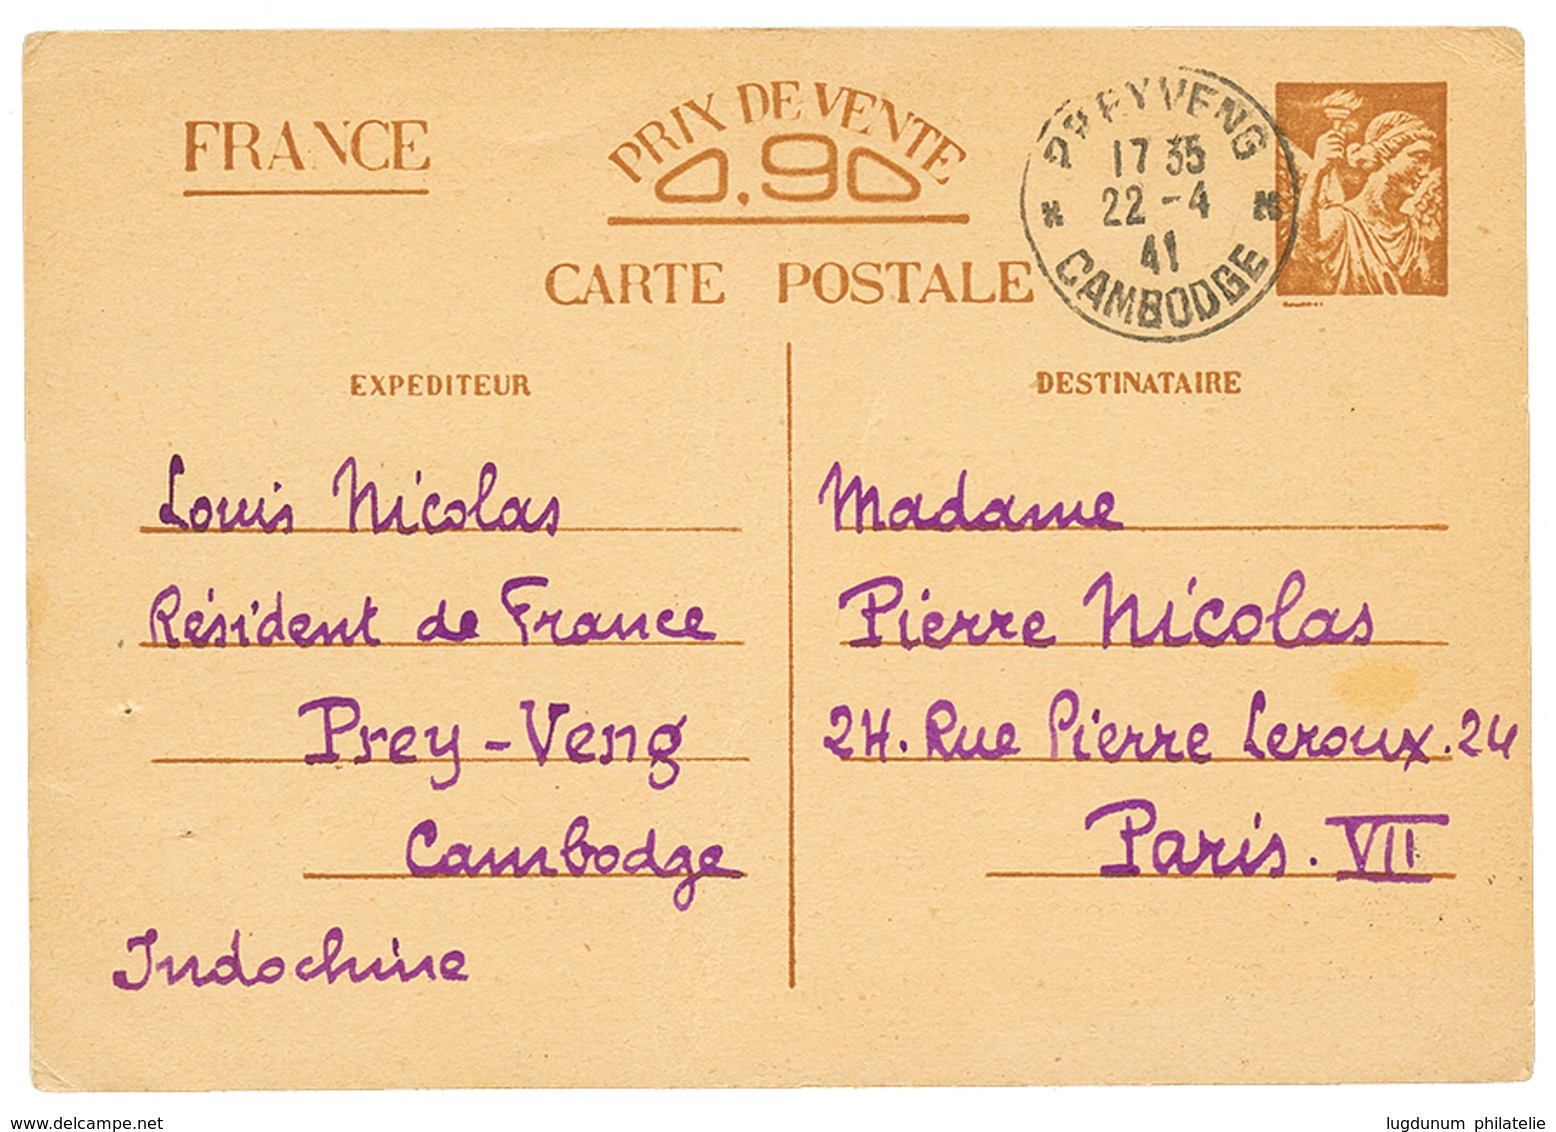 FRANCE
PRIX DE VENTE
0.90
CARTE POSTALE
PREYVENG
17 35
22 - 4
41
CAMBODGE
EXPEDITEUR
Louis Nicolas
Résident de France
Prey-Veng
Cambodge
Indochine
DESTINATAIRE
Madame
Pierre Nicolas
24. Rue Pierre Leroux. 24
Paris. VII
www.delcampe.net
lugdunum philatelie